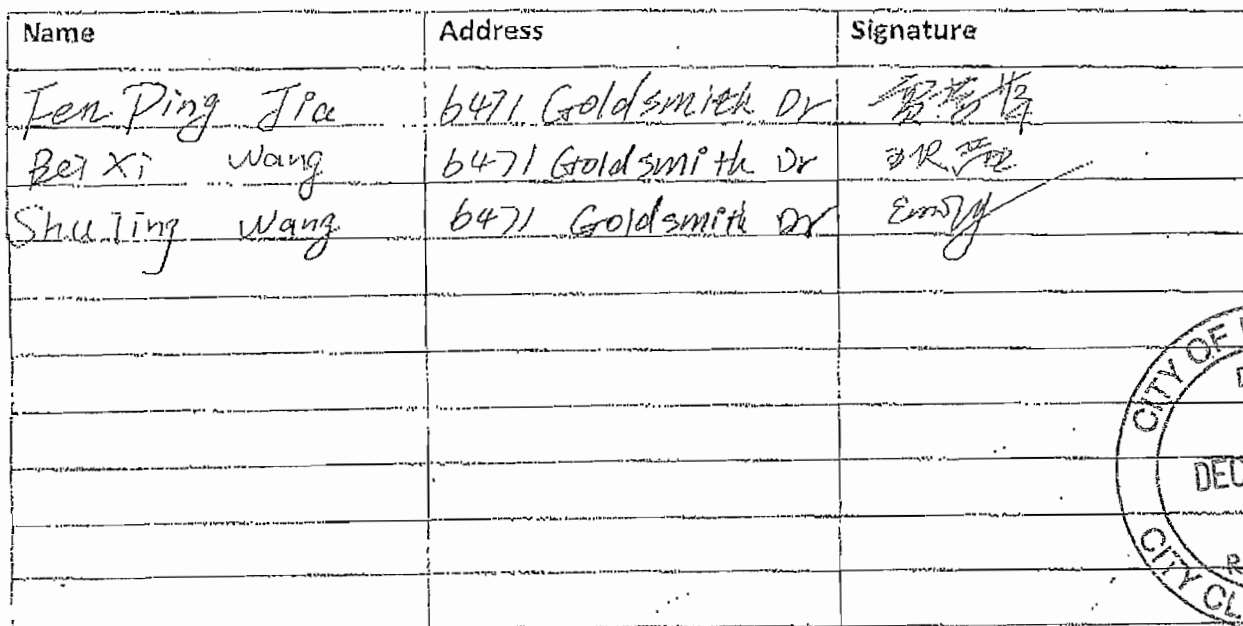 Name Address Signature
Fen Ping Jia 6471 Goldsmith Dr
Bei Xi Wang 6471 Goldsmith Dr
Shu Ting Wang 6471 Goldsmith Dr Emily
CITY OF
DEC
CITY CL